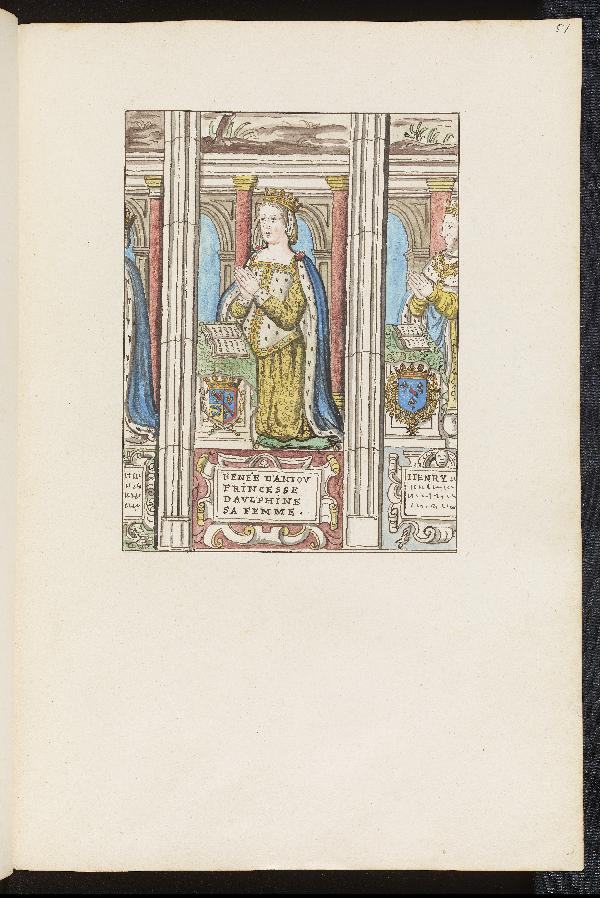 51
RENÉE D'ANJOU
PRINCESSE
DAVLPHINE
SA FEMME.
HENRY